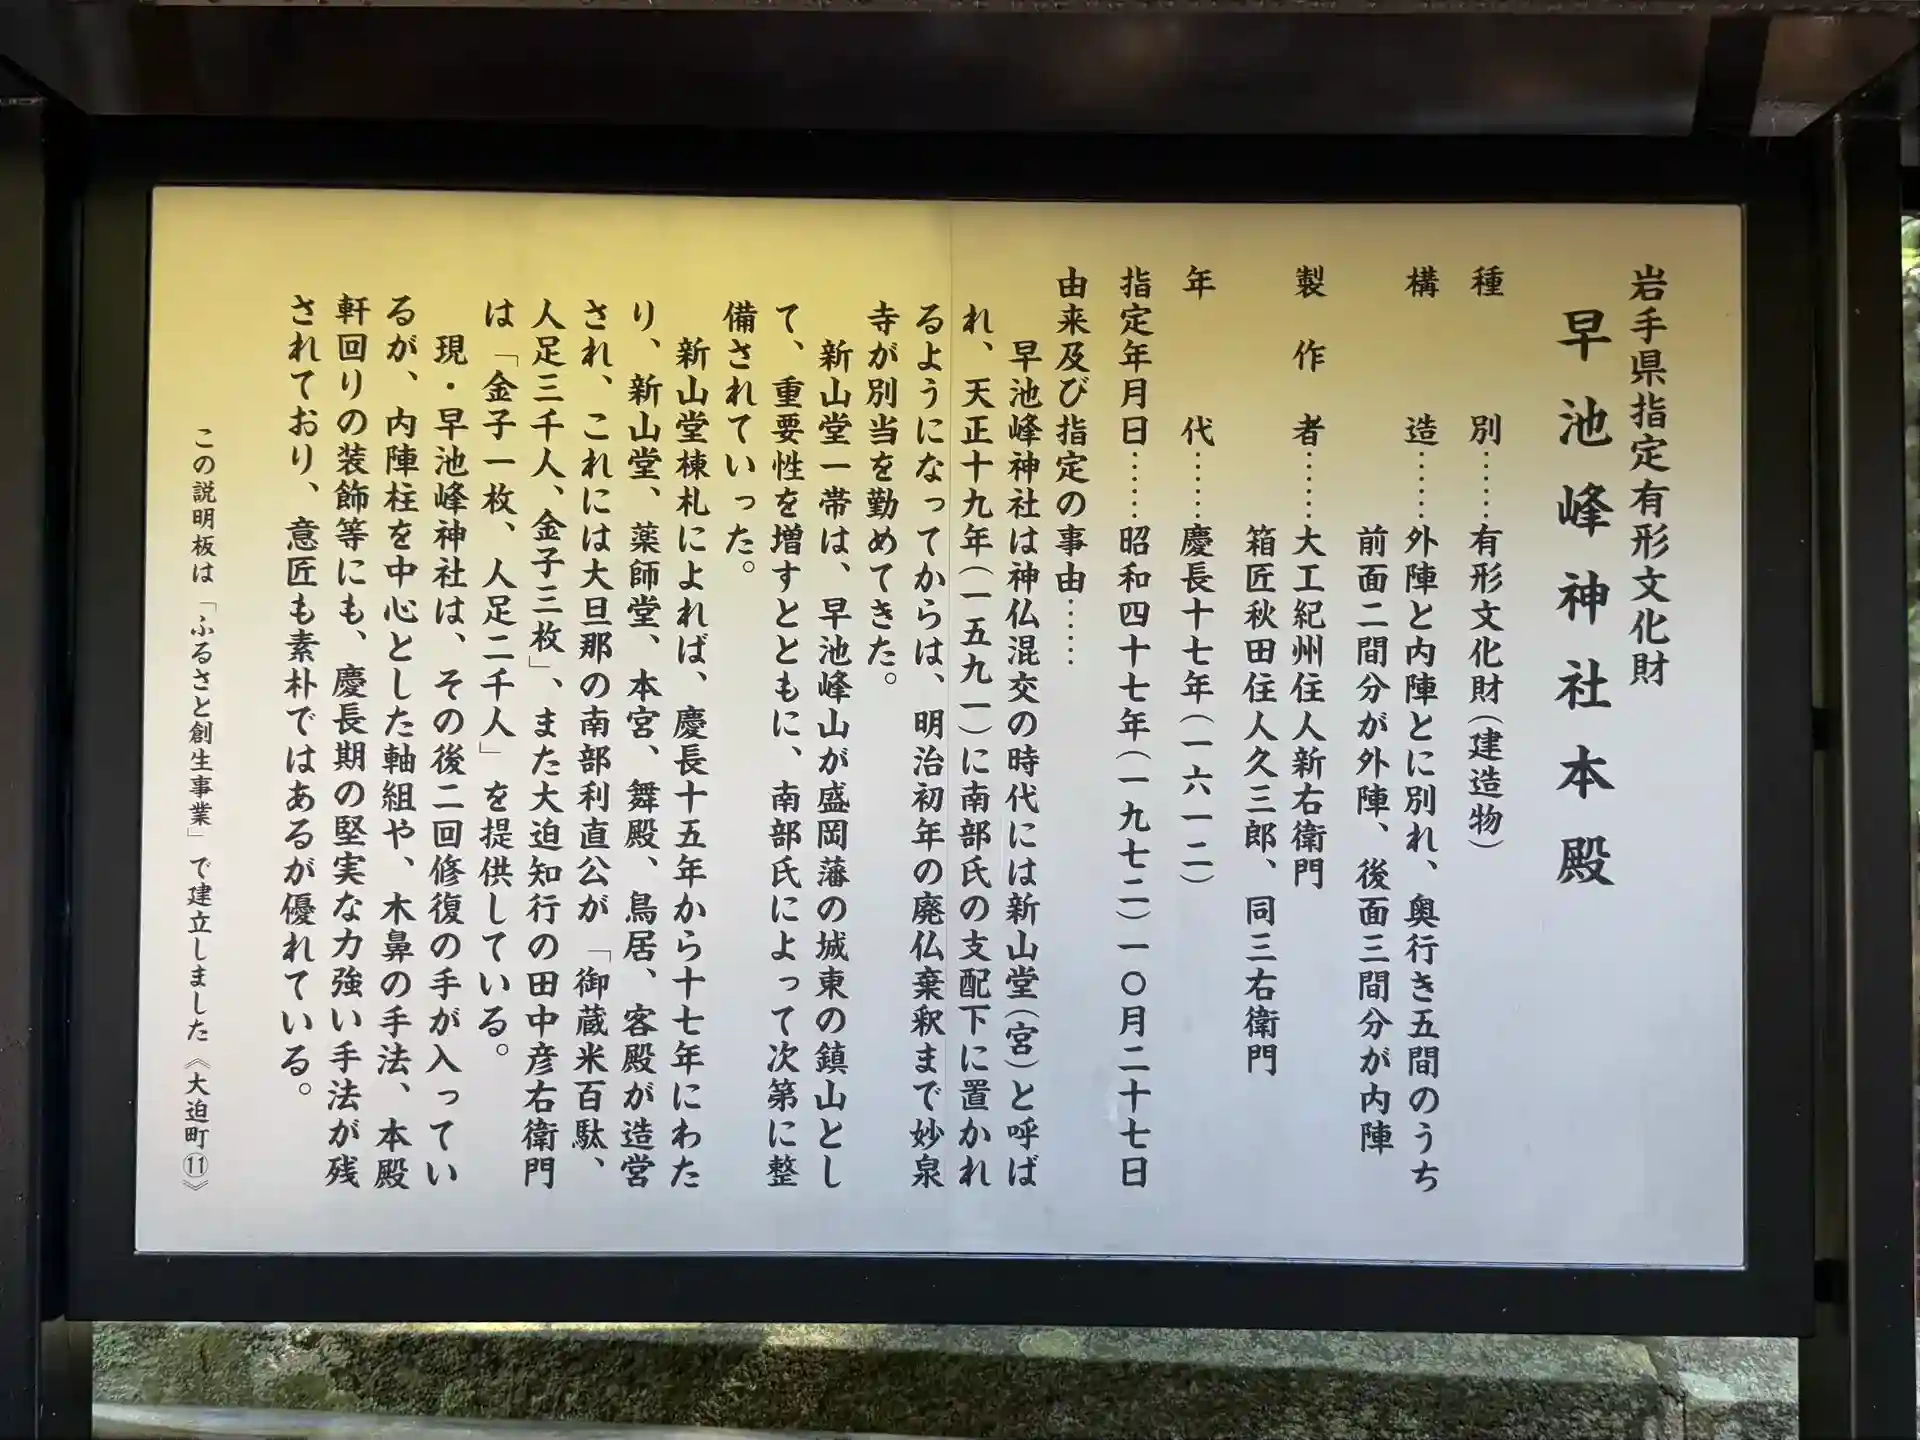 岩手県指定有形文化財
早池峰神社本殿
種別……有形文化財(建造物)
構造……外陣と内陣とに別れ、奥行き五間のうち
前面二間分が外陣、後面三間分が内陣
製作者……大工紀州住人新右衛門
箱匠秋田住人久三郎、同三右衛門
年代……慶長十七年(一六一二)
指定年月日……昭和四十七年(一九七二)一〇月二十七日
由来及び指定の事由……
早池峰神社は神仏混交の時代には新山堂(宮)と呼ば
れ、天正十九年(一五九一)に南部氏の支配下に置かれ
るようになってからは、明治初年の廃仏棄釈まで妙泉
寺が別当を勤めてきた。
新山堂一帯は、早池峰山が盛岡藩の城東の鎮山とし
て、重要性を増すとともに、南部氏によって次第に整
備されていった。
新山堂棟札によれば、慶長十五年から十七年にわた
り、新山堂、薬師堂、本宮、舞殿、鳥居、客殿が造営
され、これには大旦那の南部利直公が「御蔵米百駄、
人足三千人、金子三枚」、また大迫知行の田中彦右衛門
は「金子一枚、人足二千人」を提供している。
現・早池峰神社は、その後二回修復の手が入ってい
るが、内陣柱を中心とした軸組や、木鼻の手法、本殿
軒回りの装飾等にも、慶長期の堅実な力強い手法が残
されており、意匠も素朴ではあるが優れている。
この説明板は「ふるさと創生事業」で建立しました《大迫町⑪》